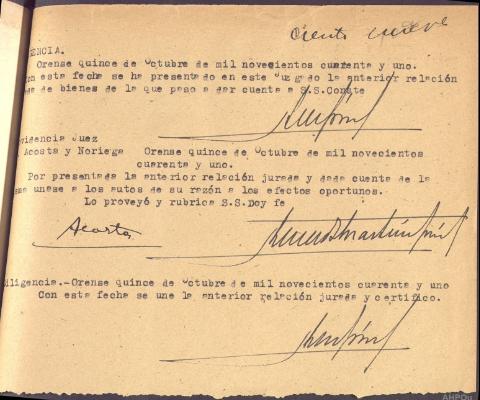 Ciento nueve
ENCIA.
Orense quince de Octubre de mil novecientos cuarenta y uno.
on esta fecha se ha presentado en este Juzgado la anterior relación
de bienes de la que paso a dar cuenta a S.S. Conste
videncia Juez
Acosta y Noriega Orense quince de Octubre de mil novecientos
cuarenta y uno.
Por presentada la anterior relación jurada y dada cuenta de la
unase a los autos de su razón a los efectos oportunos.
Lo proveyó y rubrica S.S. Doy fe
Acosta
iligencia.-Orense quince de Octubre de mil novecientos cuarenta y uno
Con esta fecha se une la anterior relación jurada y certifico.
AHPOu